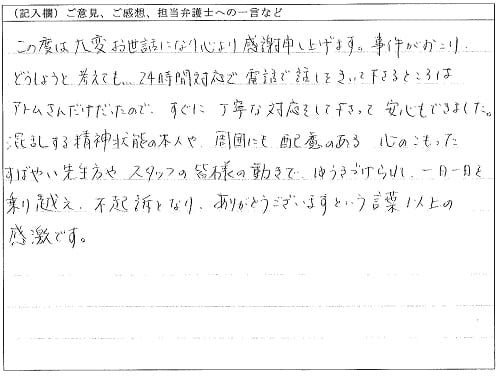 (記入欄)ご意見、ご感想、担当弁護士への一言など
この度は大変お世話になり心より感謝申し上げます。事件がおこり、
どうしようと考えても、24時間対応で電話で話しをきいて下さるところは
アトムさんだけだったので、すぐに丁寧な対応をして下さって安心もできました。
混乱する精神状態の本人や、周囲にも配慮のある心のこもった
すばやい先生方やスタッフの皆様の動きで、ゆうきづけられ、一日一日を
乗り越え、不起訴となり、ありがとうございますという言葉以上の
感激です。